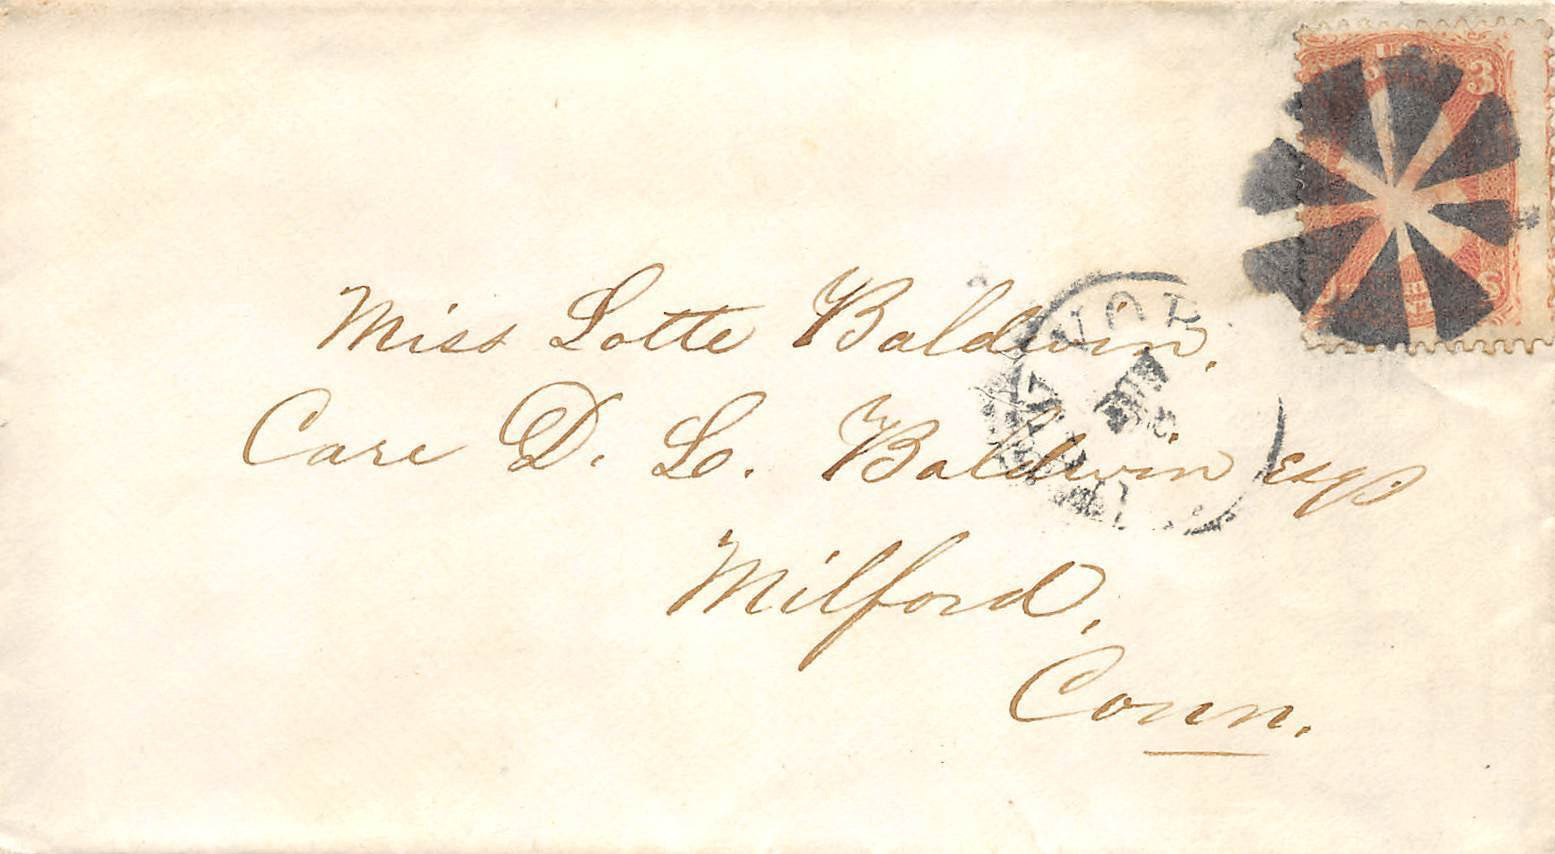 3
Miss Lotte Baldwin.
YOR
Care D. L. Baldwin Esq.
Milford,
Conn.